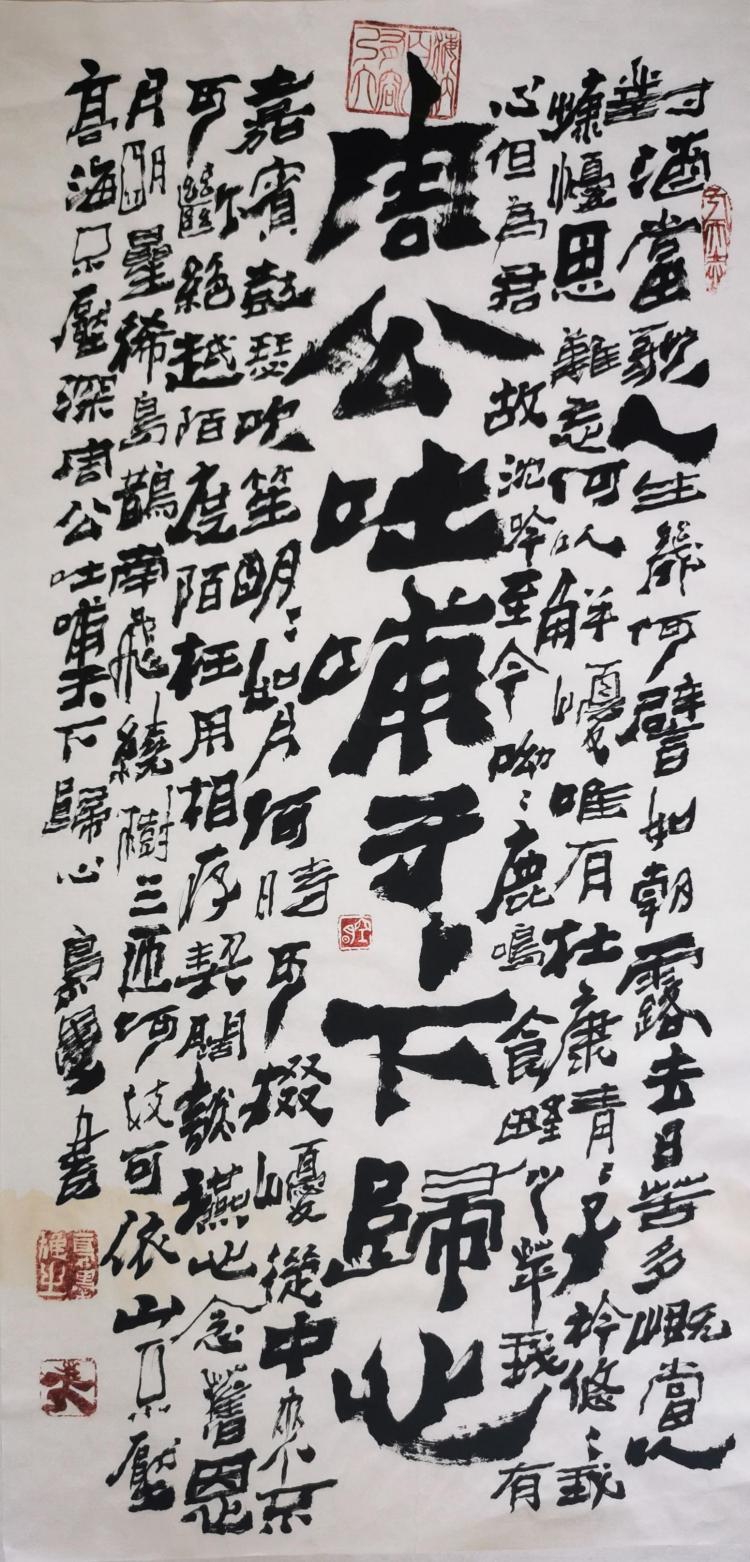 對酒當歌人生幾何譬如朝露去日苦多慨當以
慷憂思難忘何以解憂唯有杜康青〻子衿悠〻我
心但為君故沈吟至今呦〻鹿鳴食野之苹我有
周公吐哺天下歸心
嘉賓鼓瑟吹笙明〻如月何時可掇憂從中來不
可斷絕越陌度陌枉用相存契闊談讌心念舊恩
月明星稀烏鵲南飛繞樹三匝何枝可依山不厭
高海不厭深周公吐哺天下歸心 書